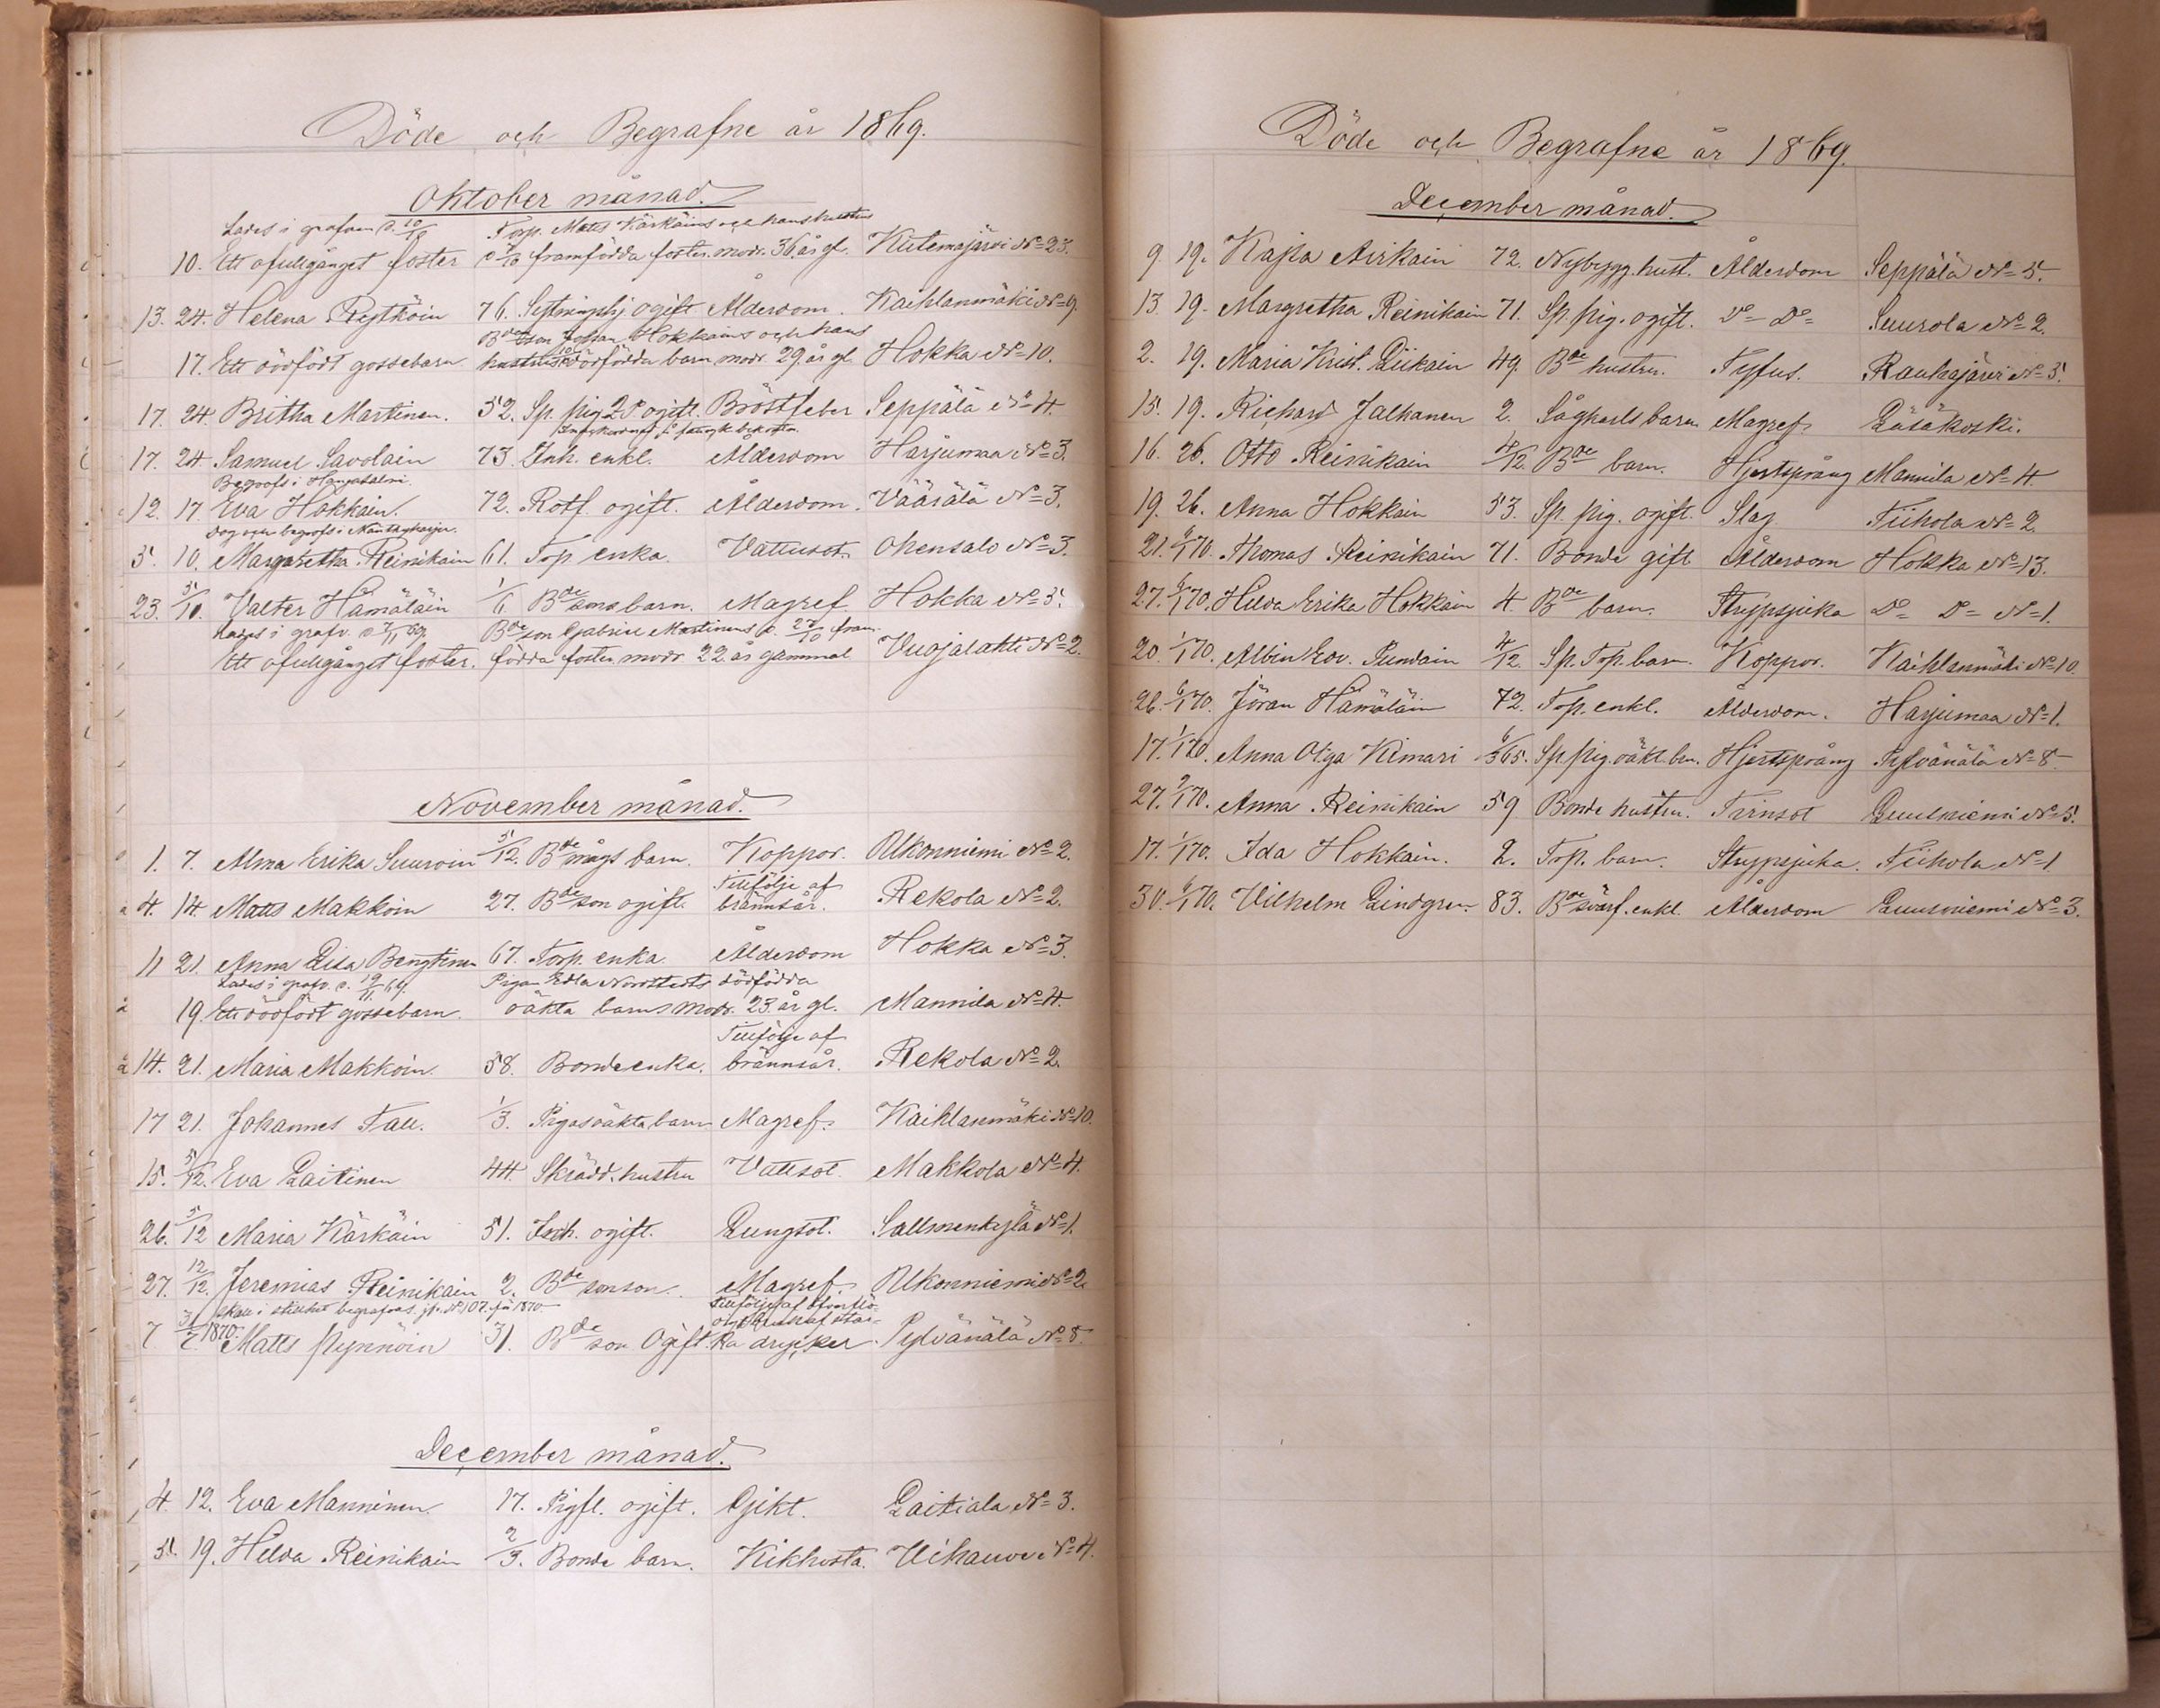 Döde och Begrafne år 1869.
Oktober månad.
Lades i grafven d. 10/10 Torp. Matts Kärkäins och hans hustrus
10. Ett ofullgånget foster framfödda foster. modr. 36 år gl. Kutemajärvi No 23.
13. 24. Helena Rytköin 76. ogift Ålderdom. Kaihlanmäki No 9.
Bde son Johan Hokkains och hans
17. Ett dödfödt gossebarn hustrus dödfödda barn modr. 29 år gl. Hokka No 10.
17. 24. Britha Martinen. 52. Sp. pig. ogift. Bröstfeber Seppälä No 4.
17. 24. Samuel Savolain 73. Inh. enkl. Ålderdom Harjumaa No 3.
Begrofs i Hangasalmi.
12. 17. Eva Hokkain. 72. Rotf. ogift. Ålderdom. Väärälä No 3.
Dog och begrofs i Kantagharju.
5. 10. Margaretha Reinikain 61. Top. enka. Vattusot. Ohensalo No 3.
23. 31/10. Valter Hämäläin 1/6 Bde sons barn. Magref Hokka No 5.
Lades i grafv. d. 7/11 69. Bde son Gabriel Martinens d. 27/10 fram-
Ett ofullgånget foster. födda foster, modr. 22 år gammal Vuojalahti No 2.
November månad.
1. 7. Alma Erika Suuroin 5/12. Bde mågs barn. Koppor. Ukonniemi No 2.
Tillfölje af
4. 14. Matts Makkoin 27. Bde son ogift. brännsår. Rekola No 2.
11 21. Anna Lisa Bengtinen 67. Torp. enka. Ålderdom Hokka No 3.
Lades i grafv. d. 19/11 69. Pigan Edla Nordstedts dödfödda
19. Ett dödfödt gossebarn. oäkta barn modr. 23 år gl. Mannila No 4.
Tillfölje af
14. 21. Maria Makkoin. 58. Bonde enka. brännsår. Rekola No 2.
17 21. Johannes Tall. 1/3. Pigas oäkta barn Magref. Kaihlanmäki No 10.
15. 5/12. Eva Laitinen 44. Skrädd. hustru Vattsot Makkola No 4.
26. 5/12 Maria Kärkäin 51. Inh. ogift. Lungsot. Sallmenkylä No 1.
27. 12/12. Jeremias Reinikain 2. Bde sonson. Magref. Ukonniemi No 2
skall i stillhet begrafvas. jfr. No 107. för 1870. Tillfölje af
7. 1870. Matts Pynnöin 31. Bde son Ogift. ka drycker Pylvänälä No 8.
December månad.
4. 12. Eva Manninen. 17. Pigfl. ogift. Gikt. Laitiala No 3.
5. 19. Hilda Reinikain 2/3. Bonde barn. Kikhosta. Vihauvo No 4.
Döde och Begrafne år 1869.
December månad.
9. 19. Kajsa Airikain 72. Nybygg. hust. Ålderdom Seppälä No 5.
13. 19. Margretha Reinikain 71. Sp. pig. ogift. Do Do Suurola No 2.
2. 19. Maria Krist. Liikain 49. Bde hustru. Tyfus. Rauhajärvi No 5.
15. 19. Richard Jalkanen 2. Sågkarls barn Magref Läsäkoski.
16. 26. Otto Reinikain 4/12. Bde barn. Hjertsprång Mannila No 4.
19. 26. Anna Hokkain 53. Sp. pig. ogift. Slag Tiihola No 2.
21. 6/1 70. Thomas Reinikain 71. Bonde gift Ålderdom Hokka No 13.
27. 6/1 70. Hilda Erika Hokkain 4. Bde barn. Strypsjuka Do Do No 1.
20. 1/1 70. Albin Edv. Pundain 4/12. Sp. Top. barn. Koppor. Kaihlanmäki No 10.
26. 6/1 70. Jöran Hämäläin 72. Top. enkl. Ålderdom. Harjumaa No 1.
17. 1/1 70. Anna Olga Kimari Sp. pig. oäkt. brn. Hjertsprång Pylvänälä No 8.
27. 9/1 70. Anna Reinikain 59 Bonde hustru. Tvinsot Luusniemi No 5.
17. 1/1 70. Ida Hokkain. 2. Top. barn. Strypsjuka. Tiihola No 1
30. 6/1 70. Vilhelm Lindgren. 83. Bde svärf. enkl. Ålderdom Luusniemi No 3.